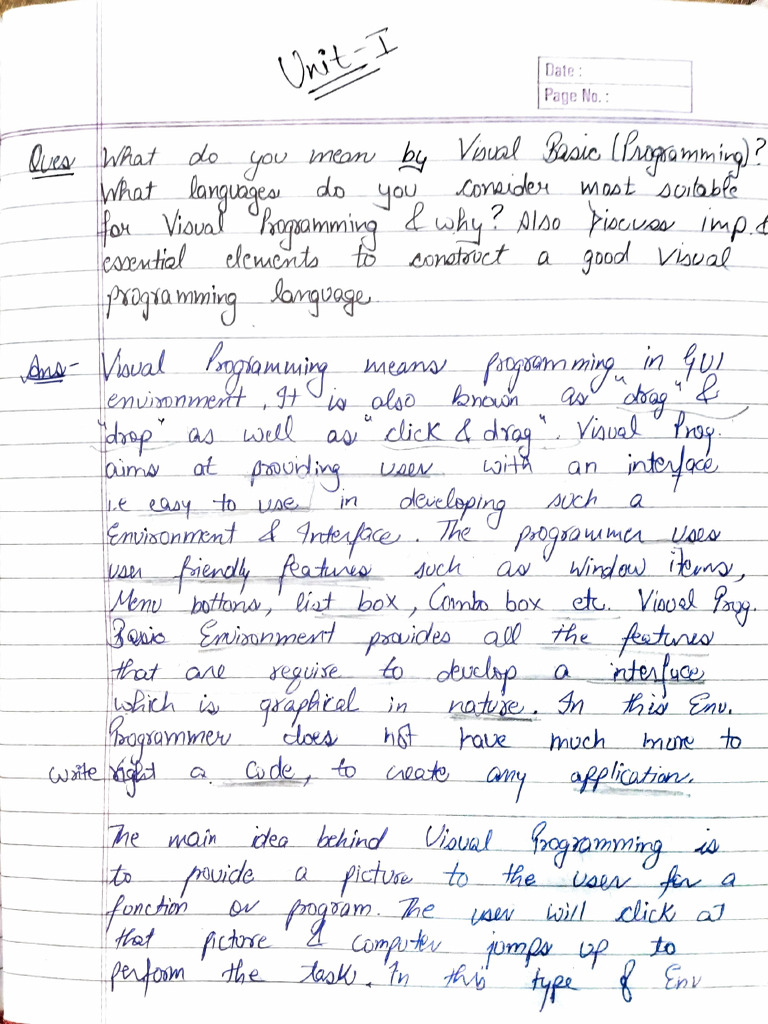 Unit-I
Date :
Page No. :
Ques What do you mean by Visual Basic (Programming)?
What languages do you consider most suitable
for Visual Programming & why? Also Discuss imp. &
essential elements to construct a good visual
programming language.
Ans- Visual Programming means programming in GUI
environment. It is also known as "drag" &
"drop" as well as "click & drag". Visual Prog.
aims at providing user with an interface
i.e easy to use in developing such a
Environment & Interface. The programmer uses
user friendly features such as window items,
Menu bottons, list box, Combo box etc. Visual Prog.
Basic Environment provides all the features
that are require to develop a interface
which is graphical in nature. In this Env.
Programmer does not have much more to
write right a code, to create any application.
The main idea behind Visual Programming is
to provide a picture to the user for a
function or program. The user will click at
that picture & computer jumps up to
perform the task. In this type of Env